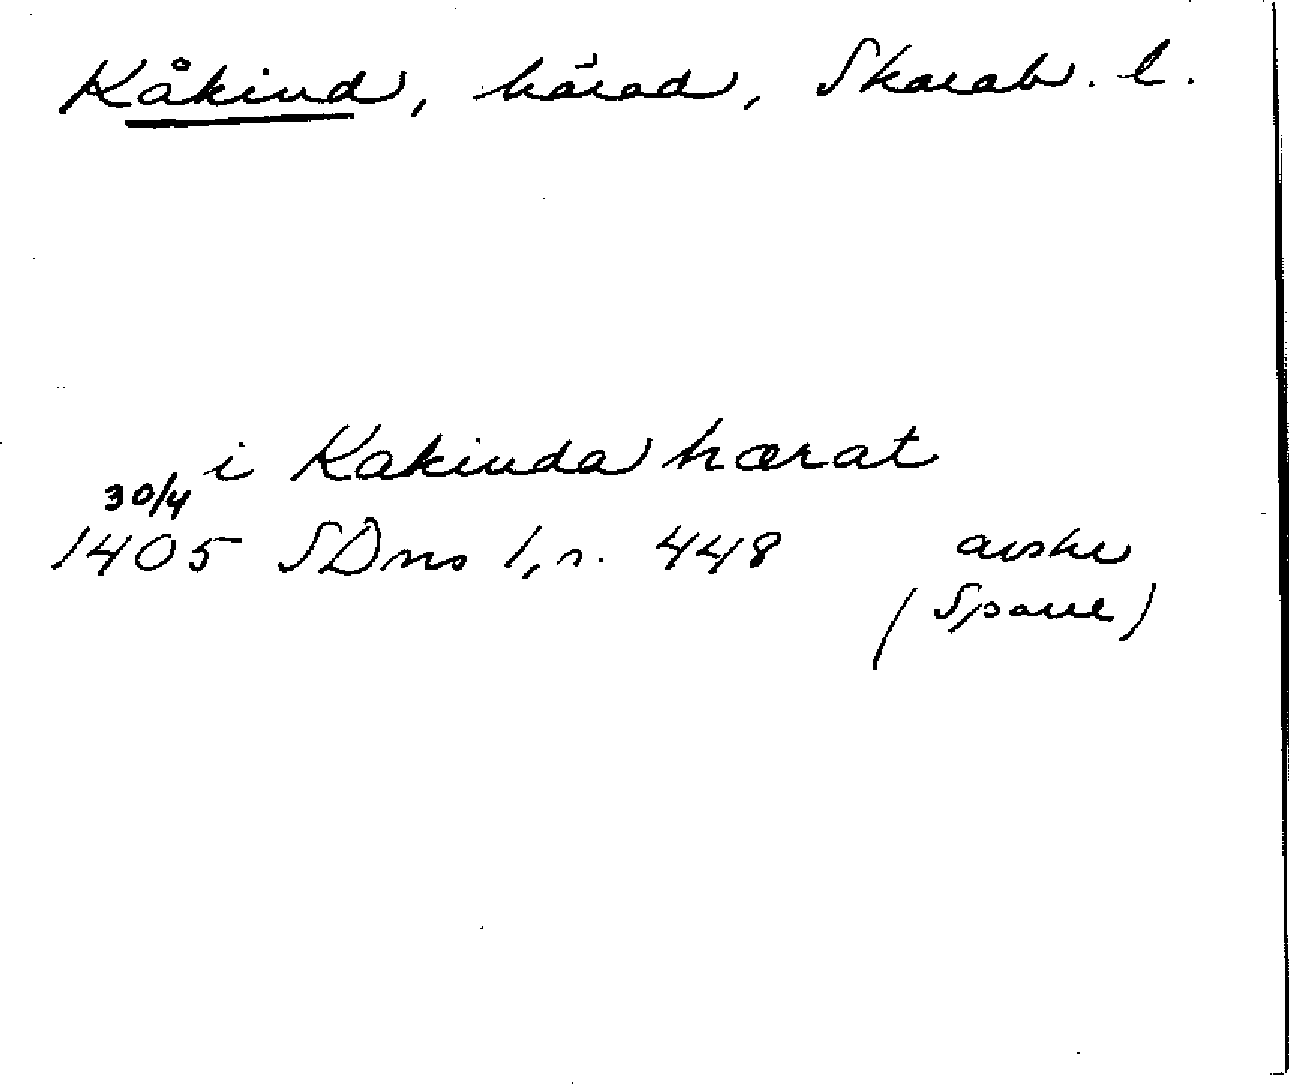 Kåkind, härad, Skarab. l.
i Kakinda hærat
30/4
1405 SDns 1, s. 448 avskr
(Sparre)